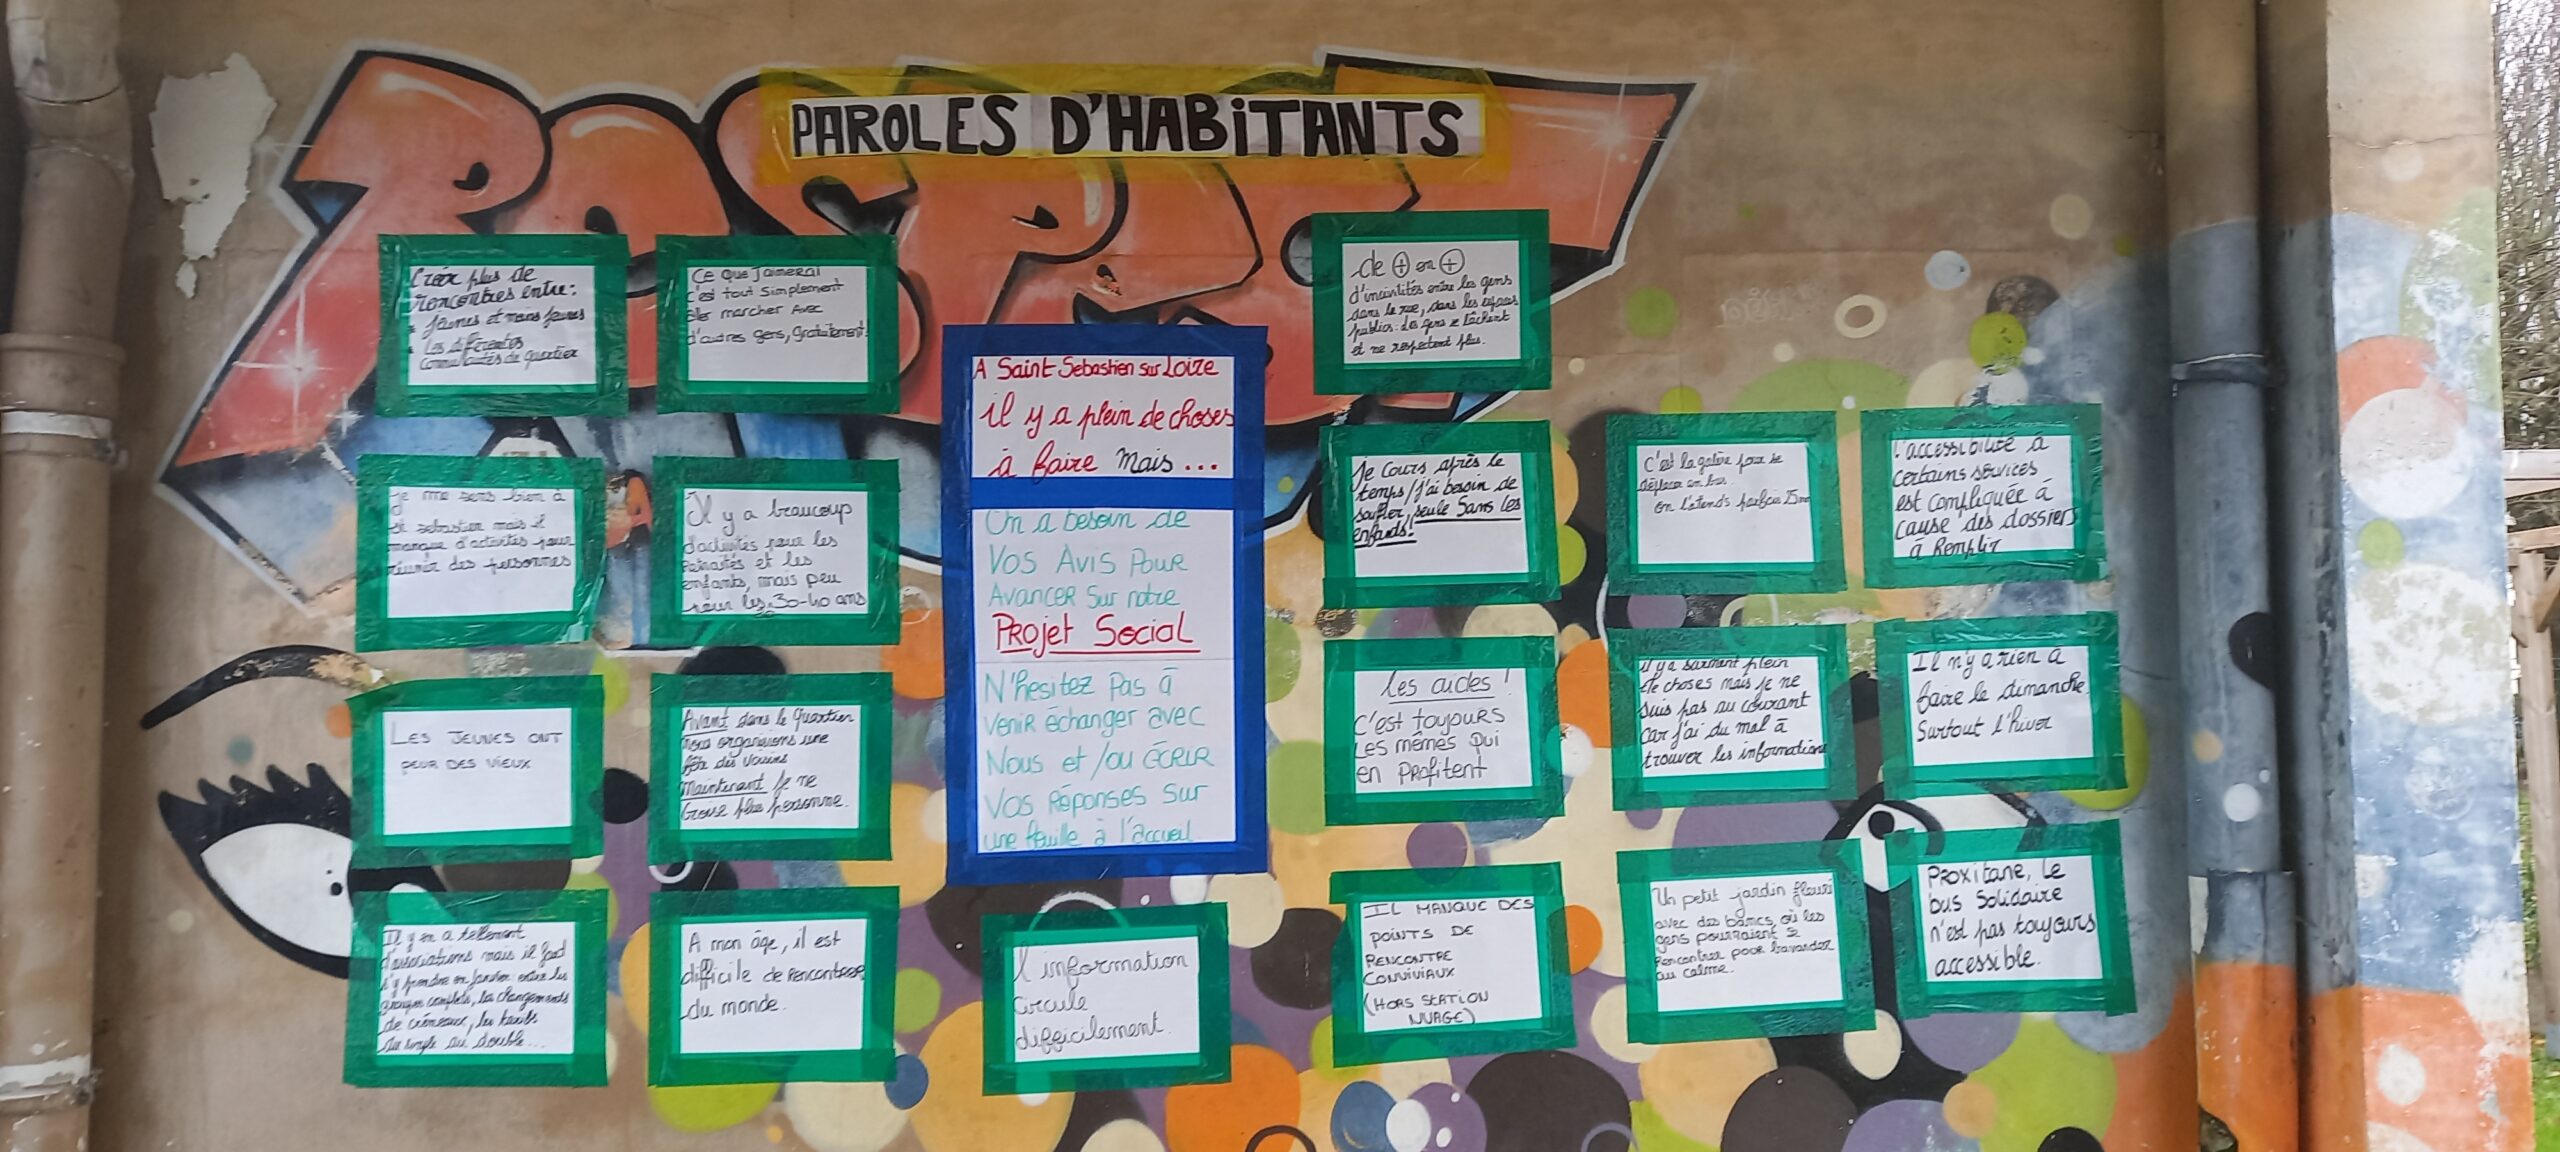 PAROLES D'HABITANTS
Créer plus de
rencontres entre:
• Jeunes et moins jeunes
• Les différentes
communautés de quartier
Ce que J'aimerai
c'est tout simplement
aller marcher avec
d'autres gens, gratuitement!
Je me sens bien à
St Sebastien mais il
manque d'activités pour
réunir des personnes
Il y a beaucoup
d'activités pour les
retraités et les
enfants, mais peu
pour les 30-40 ans
LES JEUNES ONT
PEUR DES VIEUX
Avant dans le Quartier
nous organisions une
fête des voisins
Maintenant Je ne
trouve plus personne.
Il y en a tellement
d'associations mais il faut
s'y prendre en Janvier: entre les
groupes complets, les changements
de créneaux, les tarifs
du simple au double...
A mon âge, il est
difficile de rencontrer
du monde.
A Saint Sebastien sur Loire
il y a plein de choses
à faire Mais...
On a besoin de
Vos Avis Pour
Avancer Sur notre
Projet Social
N'hesitez Pas à
venir échanger avec
Nous et/ou écrir
Vos Réponses Sur
une feuille à l'accueil
l'information
circule
difficilement.
de + en +
d'incivilités entre les gens
dans la rue, dans les espaces
publics: des gens se lâchent
et ne respectent plus.
Je cours après le
temps/j'ai besoin de
souffler, seule Sans les
enfants!
Les aides!
C'est toujours
Les mêmes qui
en Profitent
IL MANQUE DES
POINTS DE
RENCONTRE
CONVIVIAUX
(HORS STATION
NUAGE)
C'est la galère pour se
déplacer en bus.
on l'attends parfois 25mn
il y a surement plein
de choses mais je ne
suis pas au courant
car j'ai du mal à
trouver les informations
Un petit jardin fleuri
avec des bancs, où les
gens pourraient se
rencontrer pour bavarder
au calme.
l'accessibilité à
certains services
est compliquée à
cause des dossiers
à Remplir
Il n'y a rien à
faire le dimanche.
Surtout l'hiver
Proxitane, Le
bus Solidaire
n'est pas toujours
accessible.